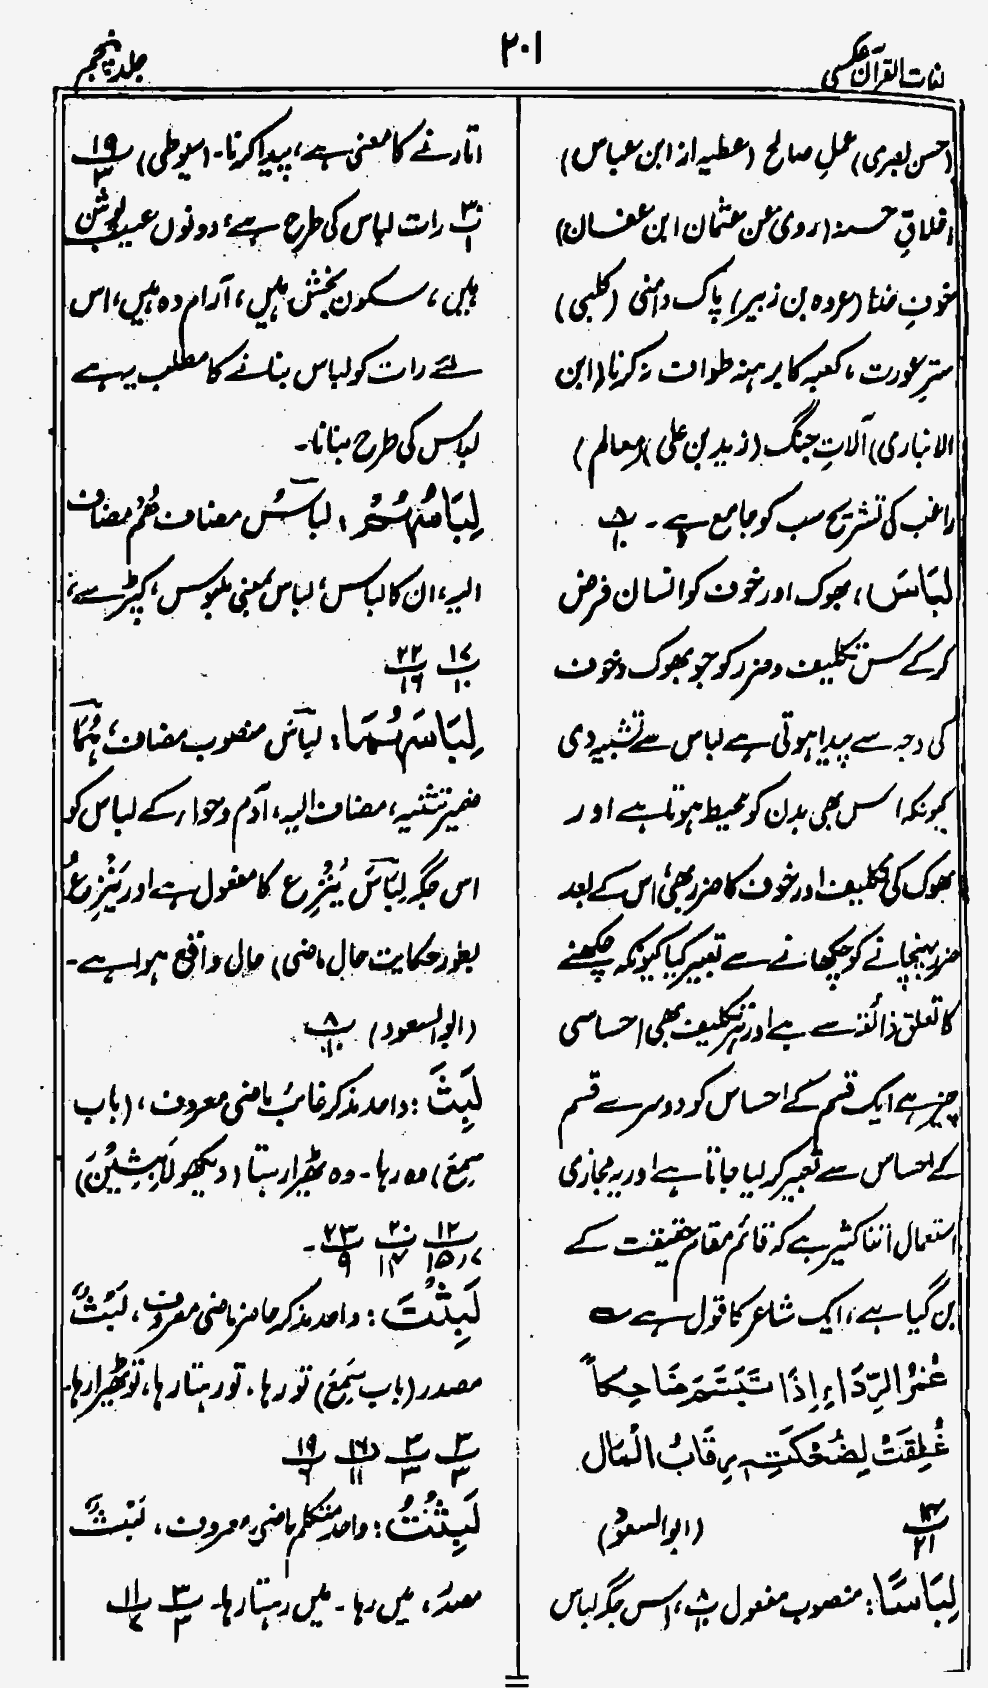 لغات القرآن عکسی
۲۰۱
جلد پنجم
(حسن بصری) عملِ صالح (عطیہ از ابن عباس)
اخلاقِ حسنہ (روی عن عثمان ابن عفان)
خوفِ خدا (عروہ بن زبیر) پاک دامنی (کلبی)
سترِ عورت، کعبہ کا برہنہ طواف نہ کرنا (ابن
الانباری) آلاتِ جنگ (زید بن علی) (معالم)
راغب کی تشریح سب کو جامع ہے۔ ۸ ب ۱۰
لِبَاسَ، بھوک اور خوف کو انسان فرض
کرکے اس تکلیف و ضرر کو جو بھوک و خوف
کی وجہ سے پیدا ہوتی ہے لباس سے تشبیہ دی
کیونکہ اس بھی بدن کو محیط ہوتا ہے اور
بھوک کی تکلیف اور خوف کا ضرر بھی، اس کے بعد
ضرر پہنچانے کو چکھانے سے تعبیر کیا کیونکہ چکھنے
کا تعلق ذائقہ سے ہے اور ہر تکلیف بھی احساسی
چیز ہے ایک قسم کے احساس کو دوسرے قسم
کے احساس سے تعبیر کر لیا جاتا ہے اور یہ مجازی
استعمال اتنا کثیر ہے کہ قائم مقام حقیقت کے
بن گیا ہے، ایک شاعر کا قول ہے ؎
غَمْرُ الرِّدَاءِ اِذَا تَبَسَّمَ ضَاحِكًا
غَلِقَتْ لِضَحْكَتِهٖ رِقَابُ الْمَالِ
۱۴ ب ۲۱ (ابو السعود)
لِبَاسًا: منصوب مفعول ۸ ب ۱۰، اس جگہ لباس
اتارنے کا معنی ہے، پیدا کرنا۔ (سیوطی) ۱۹ ب ۳
۳۰ ب ۱ رات لباس کی طرح ہے، دونوں عیب پوش
ہیں، سکون بخش ہیں، آرام دہ ہیں، اس
لئے رات کو لباس بنانے کا مطلب یہ ہے
لباس کی طرح بنانا۔
لِبَاسُهُمْ: لباسُ مضاف ھُم مضاف
الیہ، ان کا لباس، لباس بمعنی ملبوس، کپڑے،
۱۷ ب ۱۰ ۲۲ ب ۱۶
لِبَاسَهُمَا: لباسَ منصوب مضاف، ہُمَا
ضمیر تثنیہ، مضاف الیہ، آدم و حوا کے لباس کو
اس جگہ لِبَاسَ یَنْزِع کا مفعول ہے اور یَنْزِعُ
بطور حکایت حال ماضی) حال واقع ہوا ہے۔
(ابو السعود) ۸ ب ۱۰
لَبِثَ: واحد مذکر غائب ماضی معروف، (باب
سَمِعَ) وہ رہا۔ وہ ٹھہرا رہتا (دیکھو لَابِثِیْنَ)
۱۲ ب ۷ر۱۵ ۲۰ ب ۱۴ ۲۳ ب ۹۔
لَبِثْتَ: واحد مذکر حاضر ماضی معروف، لَبْثٌ
مصدر (باب سَمِعَ) تو رہا، تو رہتا رہا، تو ٹھہرا رہا۔
۳ ب ۳ ۳ ب ۳ ۱۶ ب ۱۱ ۱۹ ب ۶
لَبِثْتُ: واحد متکلم ماضی معروف، لَبْثٌ
مصدر، میں رہا۔ میں رہتا رہا۔ ۳ ب ۳ ۱۱ ب ۷